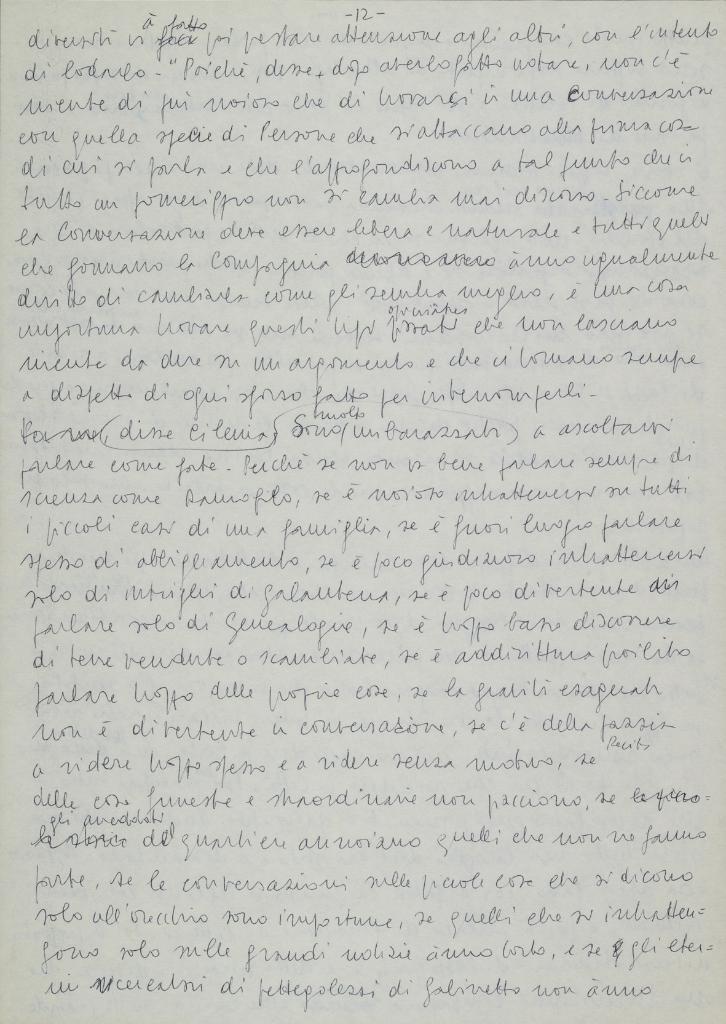 -12-
divertiti vi à fatto poi prestare attenzione agli altri, con l'intento
di lodarlo - "Poiché, disse, dopo averlo fatto notare, non c'è
niente di più noioso che di trovarsi in una Conversazione
con quella specie di Persone che si attaccano alla prima cosa
di cui si parla e che l'approfondiscono a tal punto che in
tutto un pomeriggio non si cambia mai discorso - Siccome
la Conversazione deve essere libera e naturale e tutti quelli
che formano la Compagnia ànno ugualmente
diritto di cambiarla come gli sembra meglio, è una cosa
importuna trovare questi tipi che non lasciano
niente da dire su un argomento e che ci tornano sempre
a dispetto di ogni sforzo fatto per interromperli -
disse Cilenia, Sono molto (imbarazzata) a ascoltarvi
parlare come fate - Perchè se non va bene parlare sempre di
scienza come Damofilo, se è noioso intrattenersi su tutti
i piccoli casi di una famiglia, se è fuori luogo parlare
spesso di abbigliamento, se è poco giudizioso intrattenersi
solo di intrighi di galanteria, se è poco divertente
parlare solo di Genealogie, se è troppo basso discorrere
di terre vendute o scambiate, se è addirittura proibito
parlare troppo delle proprie cose, se la gravità esagerata
non è divertente in conversazione, se c'è della pazzia
a ridere troppo spesso e a ridere senza motivo, se i Recits
delle cose funeste e straordinarie non piacciono, se
gli aneddoti del quartiere annoiano quelli che non ne fanno
parte, se le conversazioni sulle piccole cose che si dicono
solo all'orecchio sono importune, se quelli che si intratten=
gono solo sulle grandi notizie ànno torto, e se gli eter=
ni ricercatori di pettegolezzi di Gabinetto non ànno